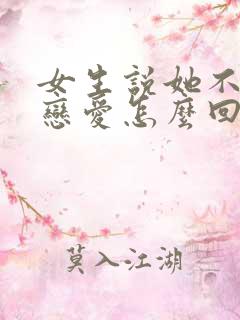 女生説她不
戀愛怎麼回
莫入江湖